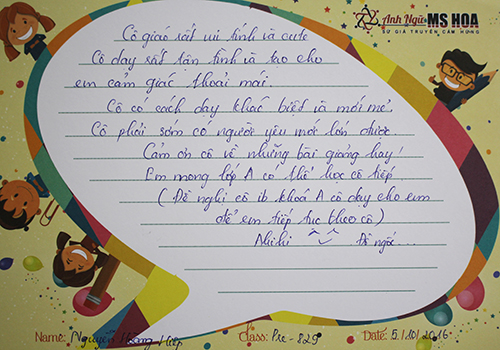 Anh Ngữ MS HOA
SỨ GIẢ TRUYỀN CẢM HỨNG
Cô giáo rất vui tính và cute
Cô dạy rất tận tình và tạo cho
em cảm giác thoải mái.
Cô có cách dạy khác biệt và mới mẻ.
Cô phải sớm có người yêu mới lớn được.
Cảm ơn cô về những bài giảng hay!
Em mong lớp A có thể học cô tiếp
( Đề nghị cô ib khoá A cô dạy cho em
để em tiếp tục theo cô )
Nhi hi ^^ Đồ ngốc ...
Name: Nguyễn Hiệp Class: Pre - 829 Date: 5/10/2016